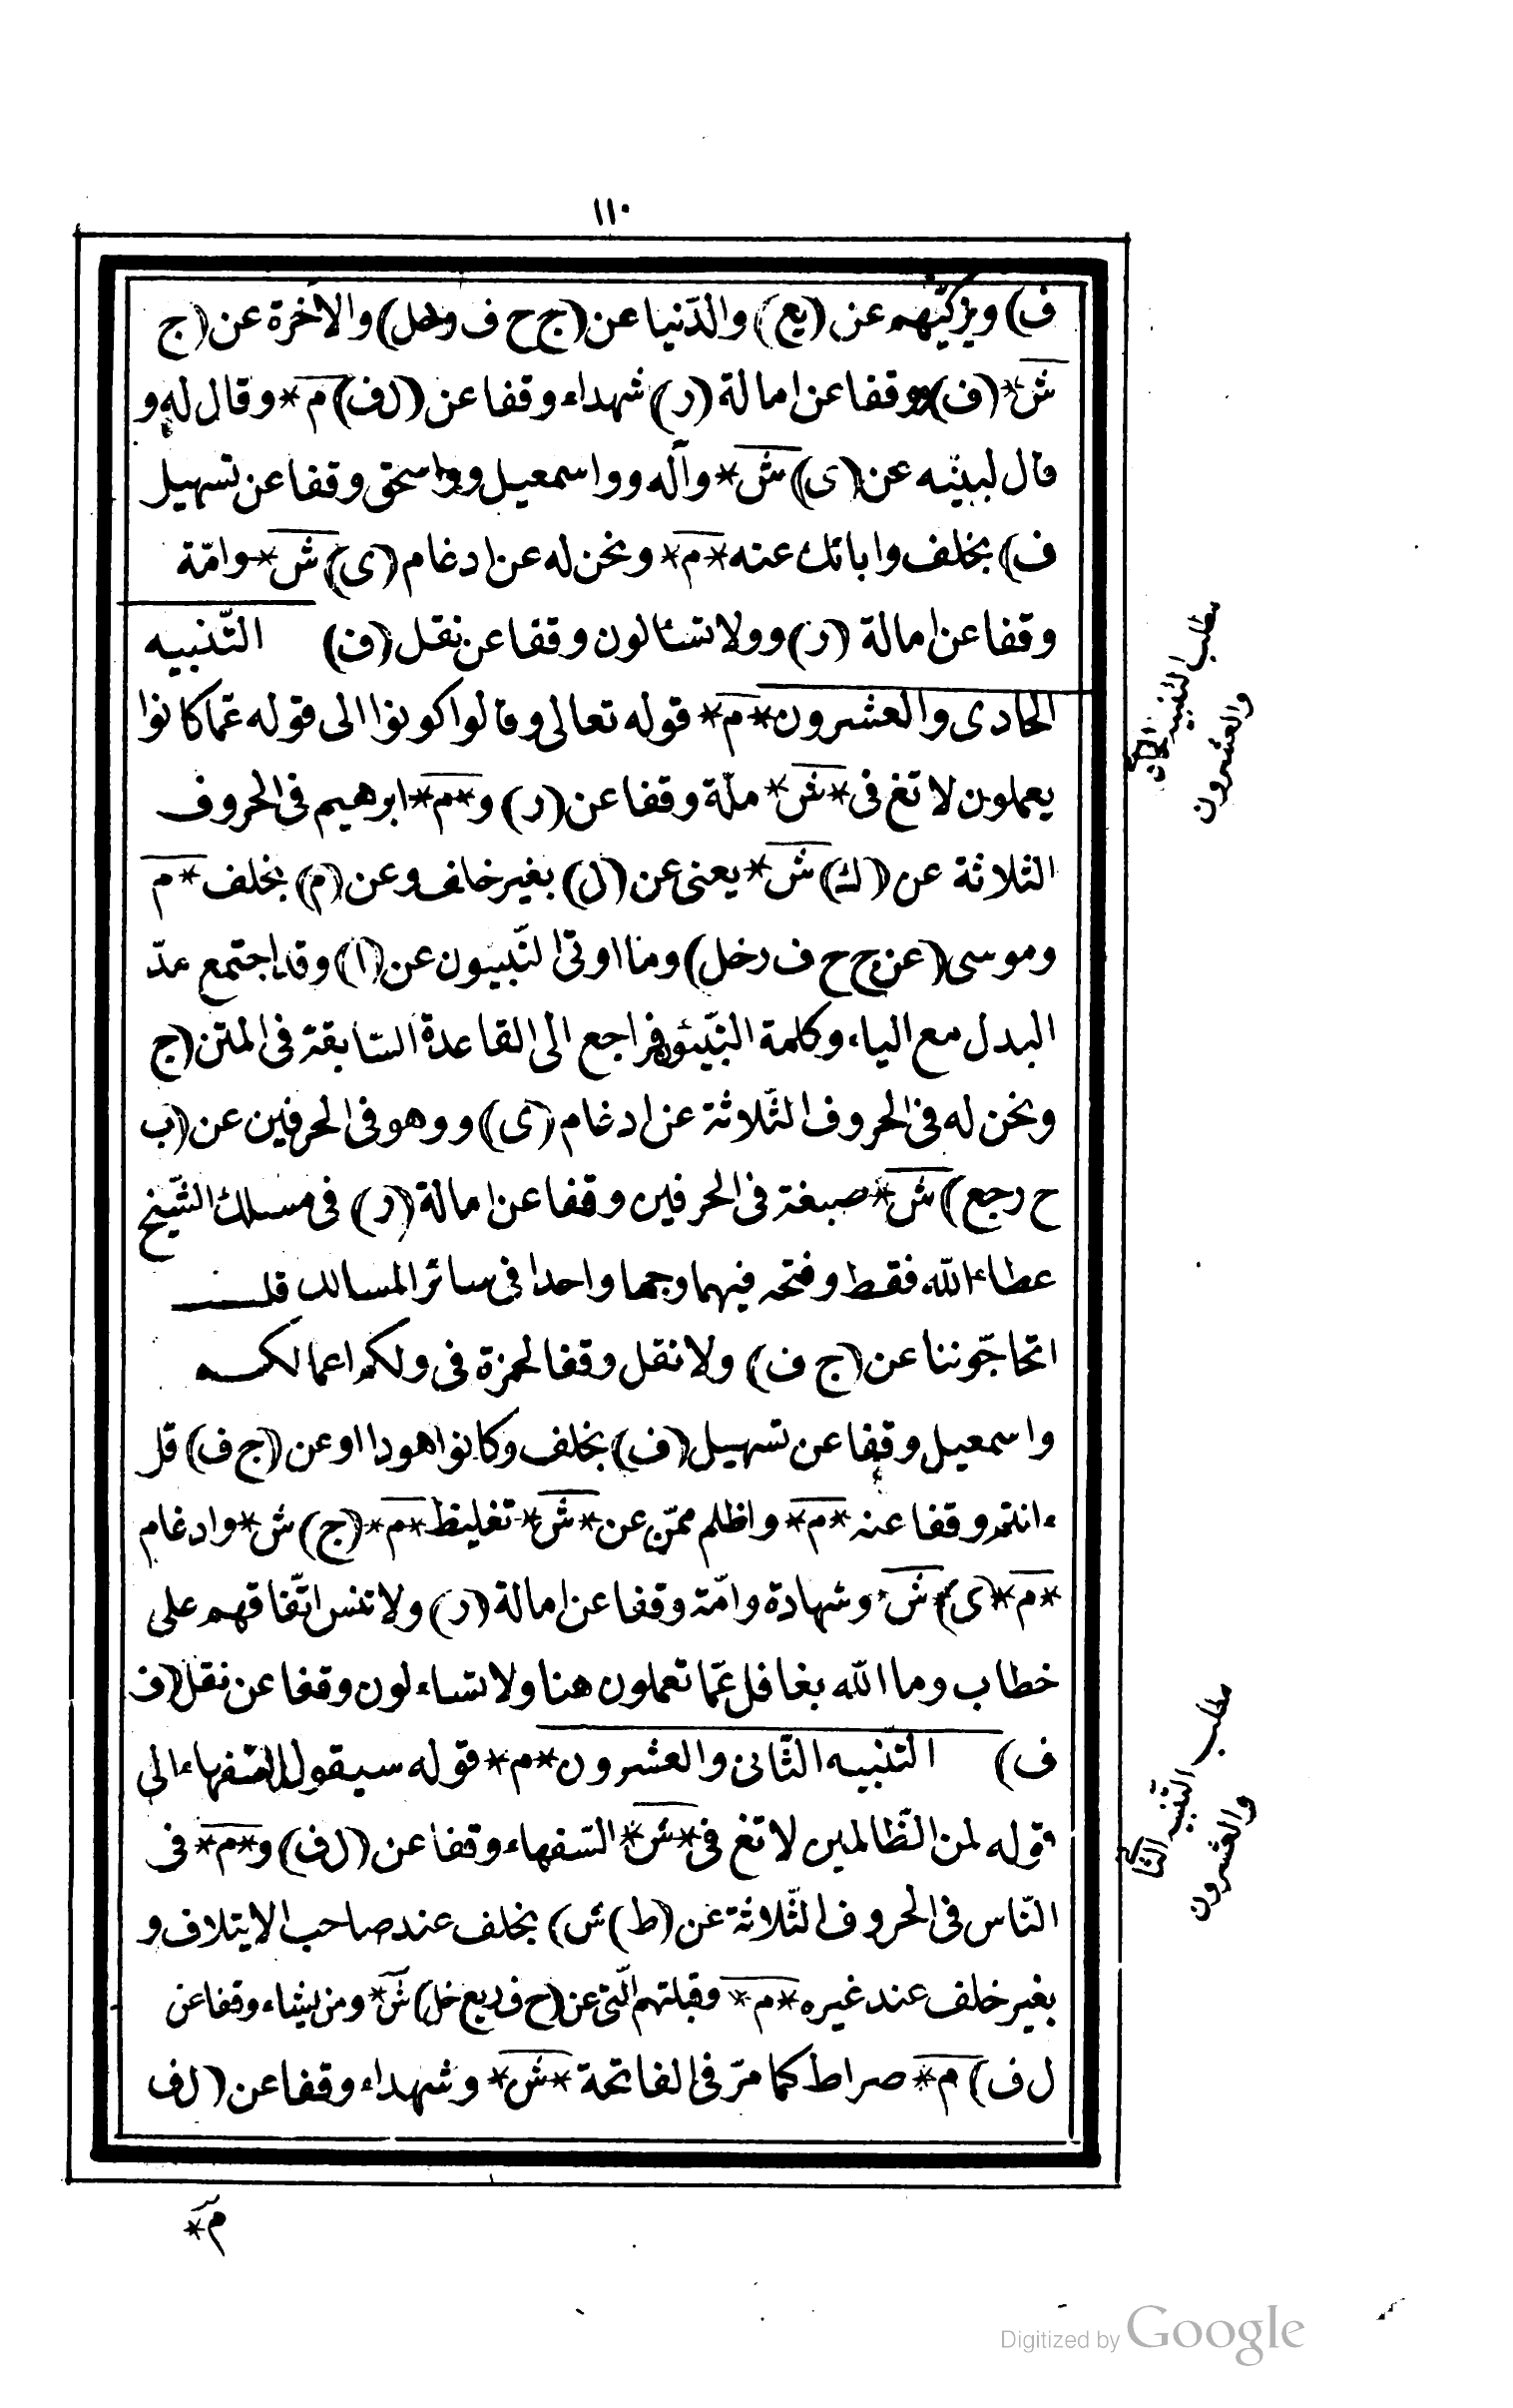 ١١٠
ف) ويزكّيهم عن (يع) والدّنيا عن (ج ح ف وخل) والاخرة عن (ج
ش* (ف) ووقفا عن امالة (ر) شهداء وقفا عن (ل ف) م* وقال له و
قال لبنيّه عن (ى) ش* وآله و واسمعيل و واسحق وقفا عن تسهيل
ف) بخلف وابائك عنه *م* ونحن له عن ادغام (ى) ش* وامّة
وقفا عن امالة (ر) و ولا تسئالون وقفا عن نقل (ف) التّنبيه
الحادى والعشرون *م* قوله تعالى وقالوا كونوا الى قوله عمّا كانوا
يعملون لا تغ فى *ش* ملّة وقفا عن (ر) و *م* ابرهيم فى الحروف
الثلاثة عن (ك) ش* يعنى عن (ل) بغير خلف وعن (م) بخلف *م
وموسى (عن ج ح ف رخل) وما اوتى النّبيون عن (ا) وقد اجتمع مدّ
البدل مع الياء وكلمة النبّيئون فراجع الى القاعدة السّابقة فى المتن (ج
ونحن له فى الحروف الثّلاثة عن ادغام (ى) و وهو فى الحرفين عن (ب
ح رجع) ش* صبغة فى الحرفين وقفا عن امالة (ر) فى مسلك الشّيخ
عطاء الله فقط وفتحه فيهما وجها واحدا فى سائر المسالك قل
اتحاجّوننا عن (ج ف) ولا نقل وقفا لحمزة فى ولكم اعمالكم
واسمعيل وقفا عن تسهيل (ف) بخلف وكانوا هودا او عن (ج ف) قل
ءانتم وقفا عنه *م* واظلم ممّن عن *ش* تغليظ *م* (ج) ش* وادغام
*م* (ى) ش* وشهادة وامّة وقفا عن امالة (ر) ولا تنس اتّفاقهم على
خطاب وما الله بغافل عمّا تعملون هنا ولا تساءلون وقفا عن نقل (ف
ف) التّنبيه الثّانى والعشرون *م* قوله سيقول السّفهاء الى
قوله لمن الظّالمين لا تغ فى *ش* السّفهاء وقفا عن (ل ف) و *م* فى
النّاس فى الحروف الثّلاثة عن (ط) ش) بخلف عند صاحب الايتلاف و
بغير خلف عند غيره *م* وقبلتهم الّتى عن (ح ف ربع خل) ش* ومن يشاء وقفا عن
ل ف) م* صراط كما مرّ فى الفاتحة *ش* وشهداء وقفا عن (ل ف
م*
مطلب التّنبيه الحاد
والعشرون
مطلب التّنبيه الثّا
والعشرون
Digitized by Google